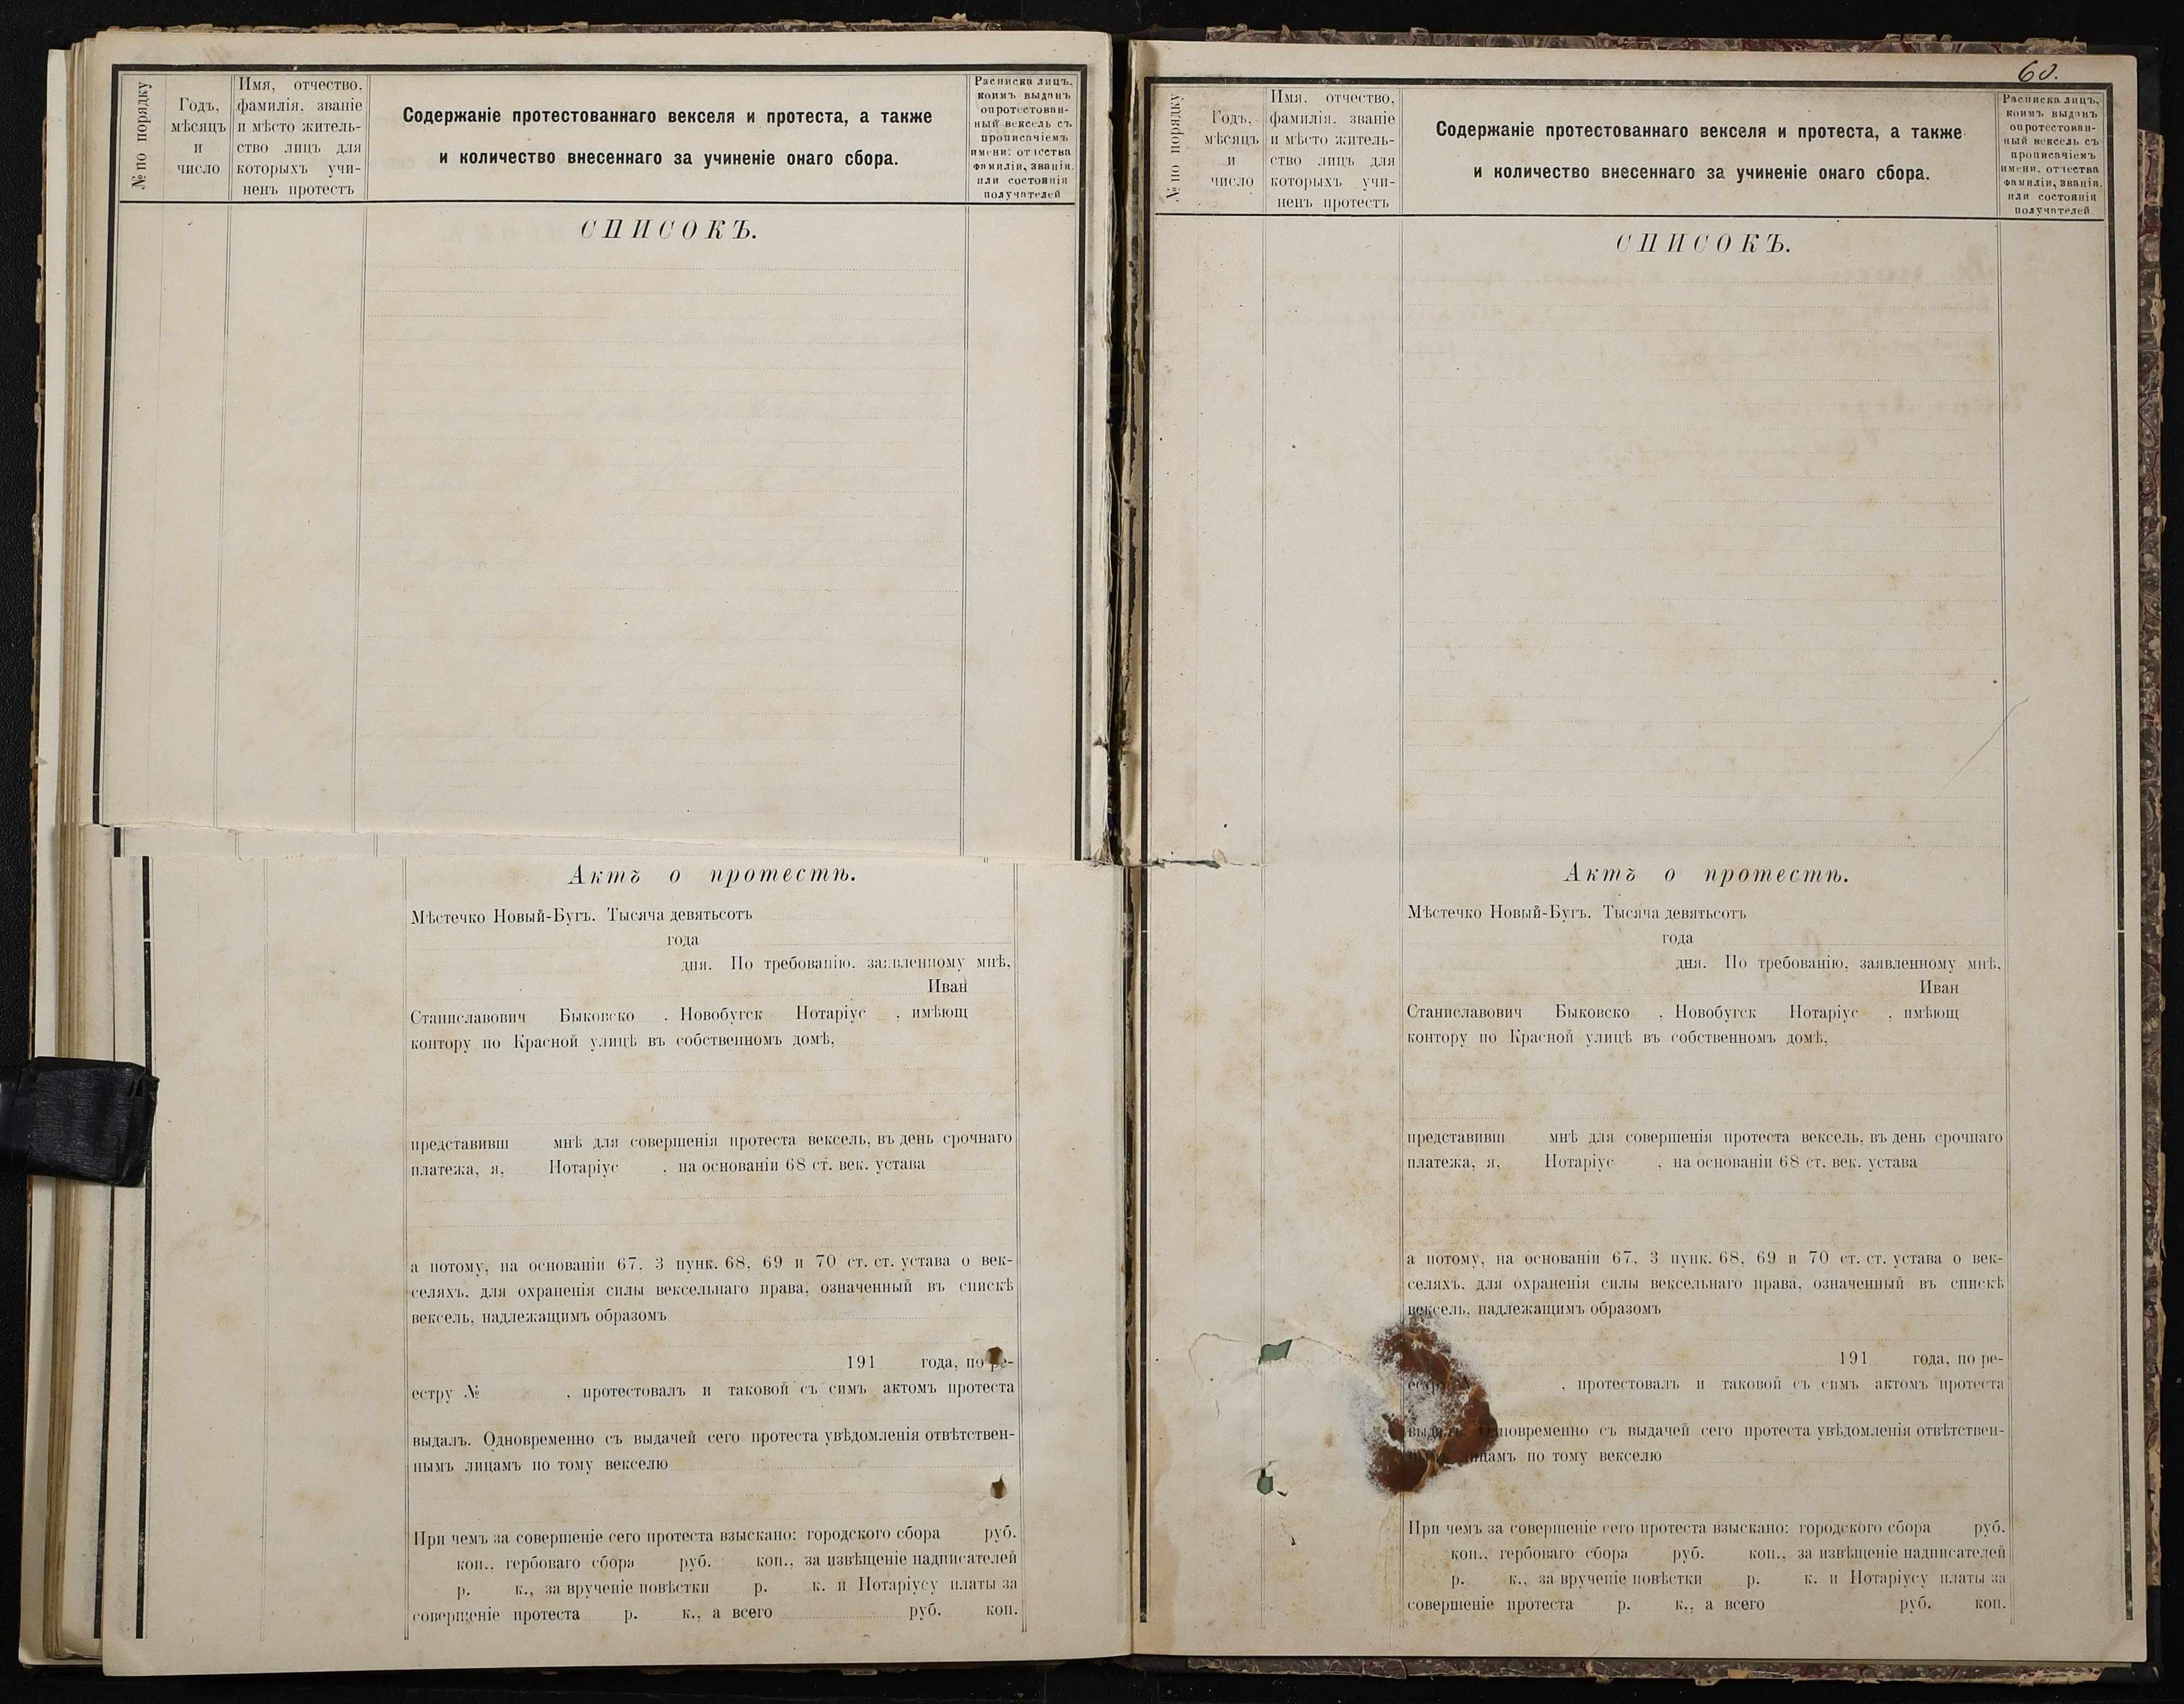 № по порядку
Годъ,
мѣсяцъ
и
число
Имя, отчество,
фамилія, званіе
и мѣсто житель-
ство лицъ для
которыхъ учи-
ненъ протестъ
Содержаніе протестованнаго векселя и протеста, а также
и количество внесеннаго за учиненіе онаго сбора.
Расписка лицъ,
коимъ выданъ
опротестован-
ный вексель съ
прописаніемъ
имени, отчества
фамиліи, званія,
или состоянія
получателей
СПИСОКЪ.
Актъ о протестѣ.
Мѣстечко Новый-Бугъ. Тысяча девятьсотъ
года
дня. По требованію, заявленному мнѣ,
Иван
Станиславович Быковско , Новобугск Нотаріус , имѣющ
контору по Красной улицѣ въ собственномъ домѣ,
представивш мнѣ для совершенія протеста вексель, въ день срочнаго
платежа, я, Нотаріус , на основаніи 68 ст. век. устава
а потому, на основаніи 67, 3 пунк. 68, 69 и 70 ст. ст. устава о век-
селяхъ, для охраненія силы вексельнаго права, означенный въ спискѣ
вексель, надлежащимъ образомъ
191 года, по ре-
естру № , протестовалъ и таковой съ симъ актомъ протеста
выдалъ. Одновременно съ выдачей сего протеста увѣдомленія отвѣтствен-
нымъ лицамъ по тому векселю
При чемъ за совершеніе сего протеста взыскано: городского сбора руб.
коп., гербоваго сбора руб. коп., за извѣщеніе надписателей
р. к., за врученіе повѣстки р. к. и Нотаріусу платы за
совершеніе протеста р. к., а всего руб. коп.
60.
№ по порядку
Годъ,
мѣсяцъ
и
число
Имя, отчество,
фамилія, званіе
и мѣсто житель-
ство лицъ для
которыхъ учи-
ненъ протестъ
Содержаніе протестованнаго векселя и протеста, а также
и количество внесеннаго за учиненіе онаго сбора.
Расписка лицъ,
коимъ выданъ
опротестован-
ный вексель съ
прописаніемъ
имени, отчества
фамиліи, званія,
или состоянія
получателей
СПИСОКЪ.
Актъ о протестѣ.
Мѣстечко Новый-Бугъ. Тысяча девятьсотъ
года
дня. По требованію, заявленному мнѣ,
Иван
Станиславович Быковско , Новобугск Нотаріус , имѣющ
контору по Красной улицѣ въ собственномъ домѣ,
представивш мнѣ для совершенія протеста вексель, въ день срочнаго
платежа, я, Нотаріус , на основаніи 68 ст. век. устава
а потому, на основаніи 67, 3 пунк. 68, 69 и 70 ст. ст. устава о век-
селяхъ, для охраненія силы вексельнаго права, означенный въ спискѣ
вексель, надлежащимъ образомъ
191 года, по ре-
, протестовалъ и таковой съ симъ актомъ протеста
выдалъ. Одновременно съ выдачей сего протеста увѣдомленія отвѣтствен-
лицамъ по тому векселю
При чемъ за совершеніе сего протеста взыскано: городского сбора руб.
коп., гербоваго сбора руб. коп., за извѣщеніе надписателей
р. к., за врученіе повѣстки р. к. и Нотаріусу платы за
совершеніе протеста р. к., а всего руб. коп.